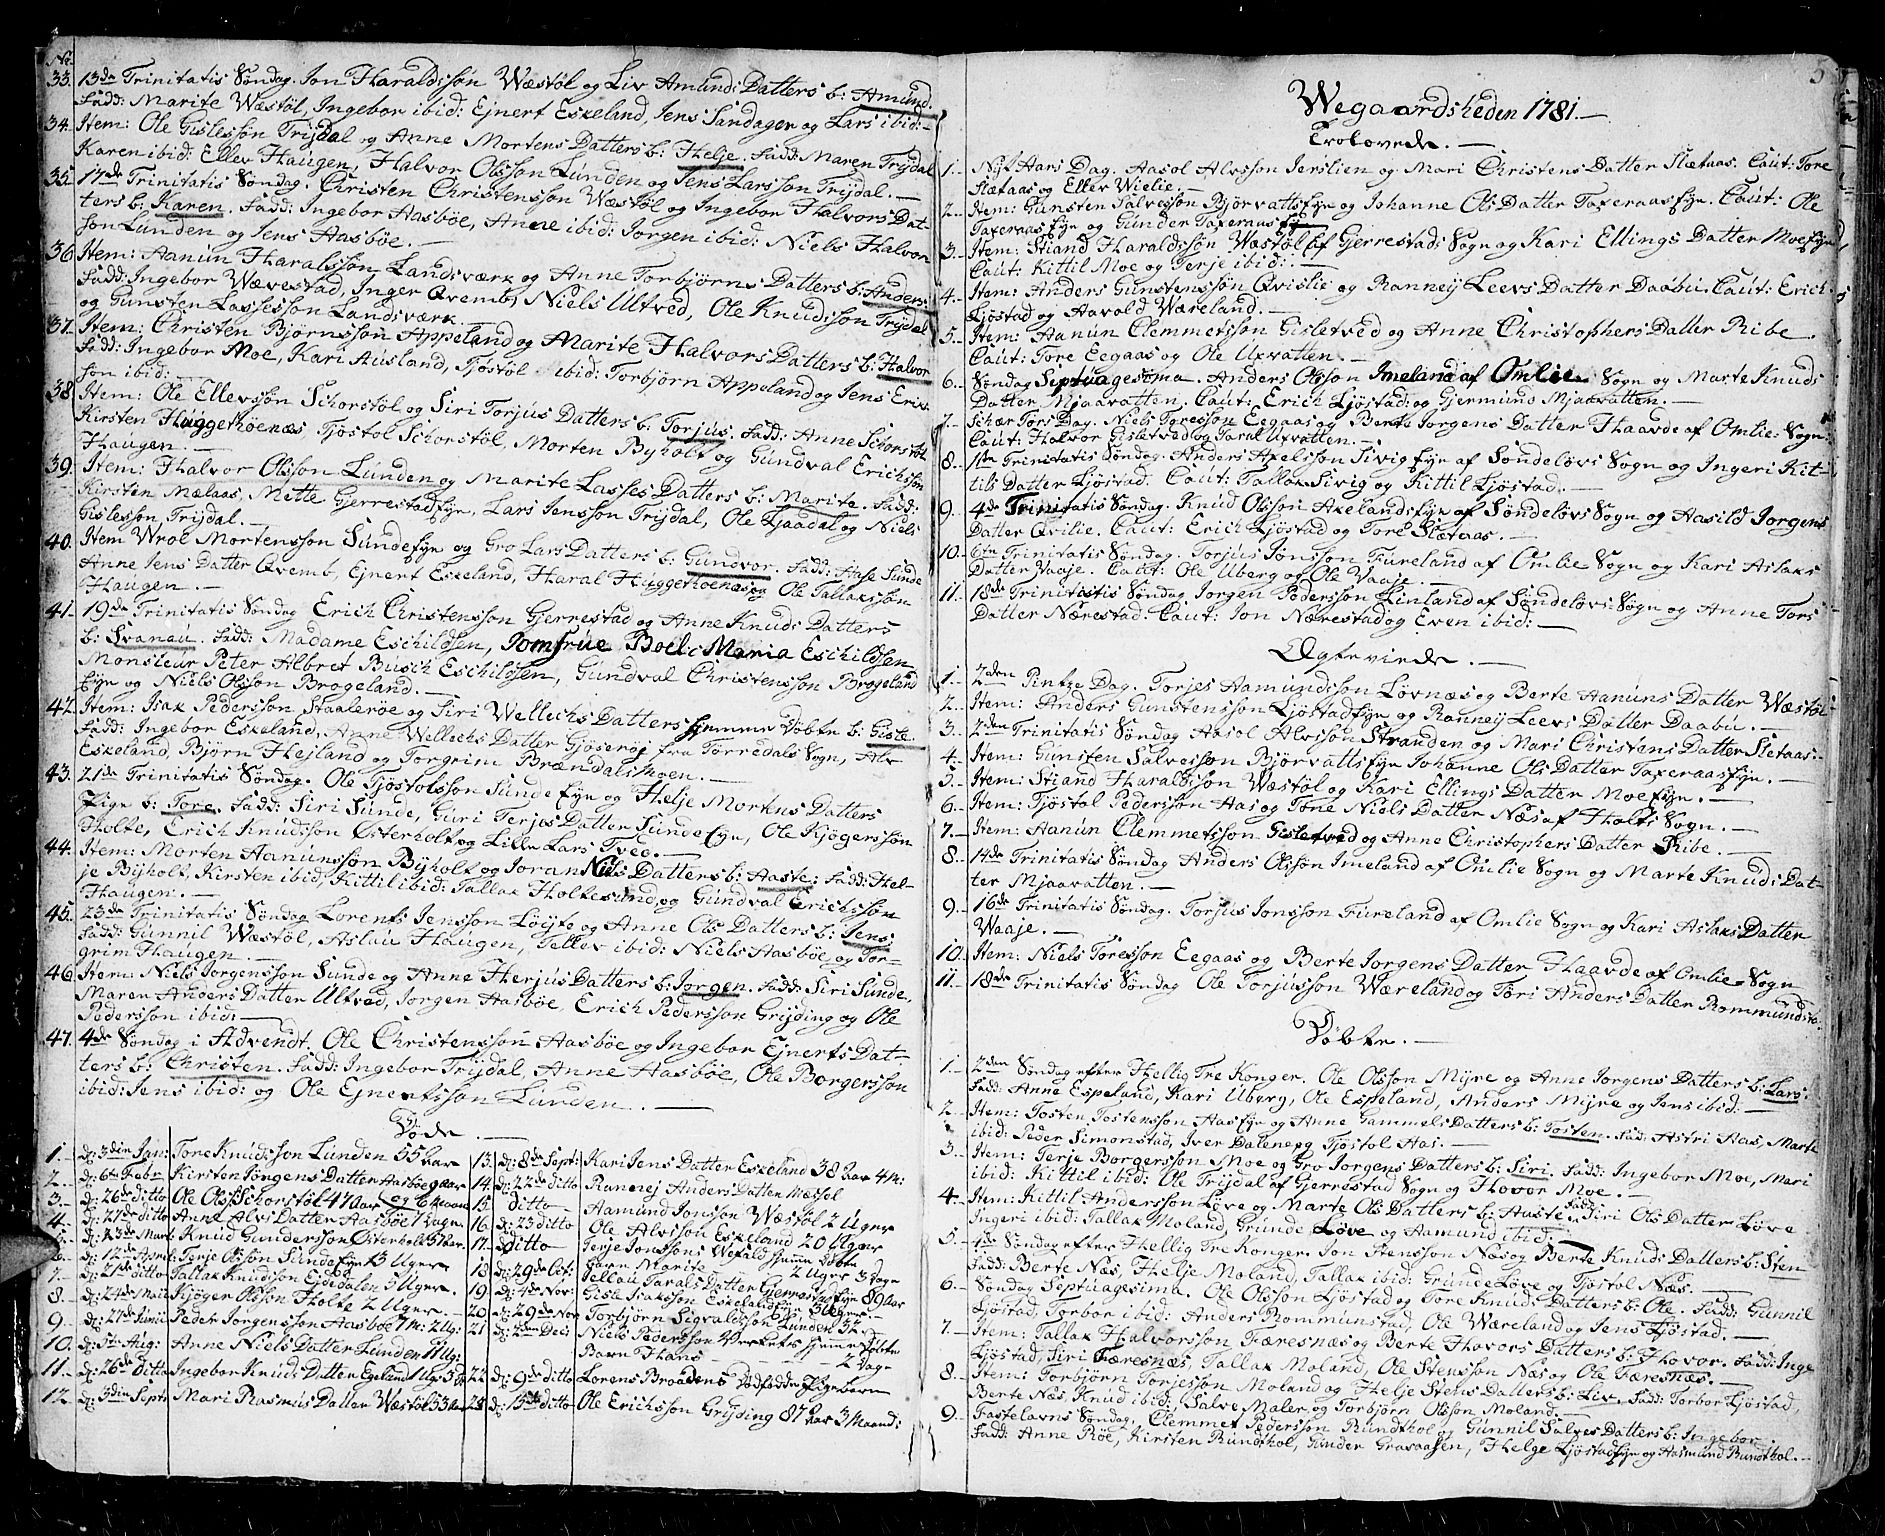 No
33. 13de Trinitatis Søndag. Jon Haraldssøn Wæstøl og Liv Amunds Datters b: Amund.
Fadd: Marite Wæstøl, Ingebor ibid: Ejnert Eskeland, Jens Sandager og Lars ibid:
34. Item: Ole Gislessøn Trijdal og Anne Mortens Datters b: Helje. Fadd: Maren Trijdal
Karen ibid: Ellev Haugen, Halvor Olssøn Lunden og Jens Larssøn Trijdal.
35. 17de Trinitatis Søndag. Christen Christenssøn Wæstøl og Ingebor Halvors Dat-
ters b: Karen. Fadd: Ingebor Aasbøe, Anne ibid: Jorgen ibid: Niels Halvor
søn Lunden og Jens Aasbøe.
36. Item: Aanun Haralssøn Landsværk og Anne Torbjørns Datters b: Anders
Fadd: Ingebor Wærestad, Inger Qvemb, Niels Ultved, Ole Knudssøn Trijdal
og Gunsten Lassessøn Landsværk.
37. Item: Christen Bjørnssøn Appeland og Marite Halvors Datters b: Halvor
Fadd: Ingebor Moe, Kari Ausland, Tjøstøl ibid: Torbjørn Appeland og Jens Erik
søn ibid:
38. Item: Ole Ellevssøn Schorstøl og Siri Torjus Datters b: Torjus. Fadd: Anne Schorstøl
Kirsten Huggethoenæs Tjøstol Schorstøl, Morten Byholt og Gundval Erichssøn
Haugen.
39. Item: Halvor Olssøn Lunden og Marite Lasses Datters b: Marite. Fadd:
Kirsten Mælaas, Mitte Gjerrestadfyn, Lars Jenssøn Trijdal, Ole Ljaadal og Niels
Gislessøn Trijdal.
40. Item Wroe Mortenssøn Sundefyn og Gro Lars Datters b: Gundvor. Fadd: Aase Sunde
Anne Jens Datter Qvemb, Ejnert Eskeland, Haral Huggethoenæs og Ole Tallakssøn
Haugen.
41. 19de Trinitatis Søndag Erich Christenssøn Gjerrestad og Anne Knuds Datters
b: Svanau. Fadd: Madame Eschildsen, Jomfrue Boel Maria Eschildsen
Monsieur Peter Albret Busch Eschildsen, Gundval Christenssøn Brogeland
fyn og Niels Olssøn Brogeland.
42. Item: Isak Pederssøn Staalerøe og Siri Wellechs Datters hjemme døbte b: Gisle
Fadd: Ingebor Eskeland, Anne Wellechs Datter Gjøserøe fra Torredals Sogn, Alv
Eskeland, Bjørn Hejland og Torgrim Brændalsmoen.
43. 21de Trinitatis Søndag. Ole Tjøstolssøn Sunde fyn og Helje Morkus Datters
Pige b: Tore. Fadd: Siri Sunde, Guri Terjes Datter Sunde fyn, Ole Kjøgerssøn
Holte, Erich Knudssøn Østerholt og Lille Lars Tved.
44. Item: Morten Aanunssøn Byholt og Joran Niels Datters b: Aaste: Fadd: Hel-
je Byholt, Kirsten ibid, Kittil ibid: Tallak Holtesund, og Gundval Erichssøn
Haugen.
45. 23de Trinitatis Søndag Lorents Jenssøn Løyte og Anne Ols Datters b: Jens:
Fadd: Gunnil Wæstøl, Aslau Haugen, Tellev ibid: Niels Aasbøe, og Tor-
grim Haugen.
46. Item: Niels Jorgenssøn Sunde og Anne Therjus Datters b: Jorgen. Fadd: Siri Sunde,
Maren Anders Datter Ultved, Jorgen Aasbøe, Erich Pederssøn Grijding og Ole
Pederssøn ibid:
47. 4de Søndag i Advendt. Ole Christenssøn Aasbøe og Ingebor Ejnerts Dat-
ters b: Christen. Fadd: Ingebor Trijdal, Anne Aasbøe, Ole Borgerssøn
ibid: Jens ibid: og Ole Ejnertssøn Lunden.
Døde.
1. d: 3die Jan: Tore Knudssøn Lunden 55 Aar
2. d: 6te Febr Kirsten Jorgens Datter Aasbøe 9 Aar
3. d: 26de ditto Ole Olssøn Schorstøl 47 Aar og 6 Maan:
4. d: 27de ditto Anne Alvs Datter Aasbøe 17 Uger
5. d: 23de Mart Knud Gunderssøn Østerholt 57 Aar
6. d: 12te April Terje Olssøn Sundefyn 13 Uger
7. d: 27de ditto Tallak Knudssøn Egedalen 3 Uger
8. d: 24de Maii Kjøger Olssøn Holte 2 Uger
9. d: 27de Junii Peder Jorgenssøn Aasbøe 7 M: 2 Ug:
10. d: 5te Aug: Anne Niels Datter Lunden 11 Ug:
11. d: 26de Ditto Ingebor Knuds Datter Egeland 1 Uge 3 D
12. d: 3die Septr Mari Rasmus Datter Wæstøl 53 Aar
13. d: 8de Sept: Kari Jens Datter Eskeland 38 Aar 4 M:
14. d: 22de ditto Rannej Anders Datter Wæstøl
15. ditto Aamund Jonssøn Wæstøl 2 Uger
16. d: 23 ditto Ole Alvssøn Eskeland 20 Uger
17. ditto Terje Jonssøns Wefald hjem døbte
Barn Marite 2 Uger 3 Dage
18. d: 29de Oct: Tellau Tarals Datter Gjerrestad fyn 89 Aar
19. d: 4de Nov: Gisle Isakssøn Eskelandfyn 3 Uger
20. d: 29de Nov Torbjørn Sigvaldssøn Lunden 32
21. d: 2den Dec: Niels Pederssøn Verkets hjemdøbte
Barn Hans 2 Dage
22. d: 9de ditto Lorens Braadens dødfødde Pigebarn
23. d: 15de ditto Ole Erichssøn Grijding 87 Aar 3 Maand:
5
Wegaardsheden 1781.
Trolovede.
1. Nyt Aars Dag. Aasol Alvssøn Jerslien og Mari Christens Datter Sletaas. Caut: Tore
Sletaas og Ellev Wielie.
2. Item: Gunsten Salvessøn Bjørvattsfyn og Johanne Ols Datter Taxeraasfyn. Caut: Ole
Taxeraasfyn og Gunder Taxeraas
3. Item: Stiand Haraldssøn Wæstøl af Gjerrestads Sogn og Kari Ellings Datter Moefyn
Caut: Kittil Moe og Terje ibid:
4. Item: Anders Gunstenssøn Qvislie og Rannej Leevs Datter Daabu. Caut: Erich
Ljøstad og Aavold Wæreland.
5. Item: Aanun Clemmetssøn Gisletved og Anne Christophers Datter Ribe.
Caut: Tore Eegaas og Ole Uxvatten
6. Søndag Septuagesoma. Anders Olssøn Imeland af Omlie Sogn og Marte Knuds
Datter Mjaavatten. Caut: Erich Ljøstad og Gjermund Mjaavatten.
7. Schær Tors Dag. Niels Toressøn Eegaas og Berte Jorgens Datter Haavde af Omlie Sogn:
Caut: Halvor Gisletved og Taral Uxvatten.
8. 1ste Trinitatis Søndag. Anders Axelssøn Sivig fyn af Søndeløvs Sogn og Ingeri Kit-
tils Datter Ljøstad. Caut: Tallak Sivig og Kittil Ljøstad.
9. 4de Trinitatis Søndag. Knud Olssøn Axelandsfyn af Søndeløvs Sogn og Aasild Jorgens
Datter Qvilie. Caut: Erich Ljøstad og Tore Sletaas.
10. 6te Trinitatis Søndag. Torjus Jonssøn Fureland af Omlie Sogn og Kari Aslaks
Datter Vaaje. Caut: Ole Uberg og Ole Vaaje.
11. 18de Trinitatis Søndag Jorgen Pederssøn Linland af Søndeløvs Sogn og Anne Tors
Datter Nærestad. Caut: Jon Nærestad og Even ibid:
Ægtevirde.
1. 2den Pintze Dag. Torjes Aamundssøn Løvnæs og Berte Aanuns Datter Wæstøl
2. Item: Anders Gunstenssøn Ljøstadfyn og Rannej Leevs Datter Daabu.
3. 2den Trinitatis Søndag Aasol Alvssøn Stranden og Mari Christens Datter Sletaas.
4. Item: Gunsten Salvessøn Bjørvattsfyn Johanne Ols Datter Taxeraasfyn.
5. Item: Stiand Haraldssøn Wæstøl og Kari Ellings Datter Moefyn.
6. Item: Tjøstol Pederssøn Aas og Tone Niels Datter Næs af Holts Sogn.
7. Item: Aanun Clemmetssøn Gisletved og Anne Christophers Datter Ribe.
8. 14de Trinitatis Søndag Anders Olssøn Imeland af Omlie Sogn og Marte Knuds Dat-
ter Mjaavatten.
9. 16de Trinitatis Søndag. Torjus Jonssøn Fureland af Omlie Sogn og Kari Aslaks Datter
Waaje.
10. Item: Niels Toressøn Eegaas og Berte Jorgens Datter Haavde af Omlie Sogn
11. 18de Trinitatis Søndag Ole Torjussøn Wæreland og Tori Anders Datter Rommundsta
Døbte.
1. 2den Søndag efter Hellig Tre Konger. Ole Olssøn Mijre og Anne Jorgens Datters b: Lars.
Fadd: Anne Espeland, Kari Uberg, Ole Espeland, Anders Mijre og Jens ibid:
2. Item: Tosten Tostenssøn Aasfyn og Anne Gammels Datters b: Tosten. Fad: Astri Aas, Marte
ibid: Peder Simonstad, Iver Dalen og Tjøstol Aas.
3. Item: Terje Borgerssøn Moe og Gro Jorgens Datters b: Siri. Fadd: Ingebor Moe, Mari
ibid: Kittil ibid: Ole Trijdal af Gjerrestad Sogn og Hovor Moe.
4. Item: Kittil Anderssøn Løve og Marte Ols Datters b: Aaste. Fadd: Siri Ols Datter Løve
Ingeri ibid: Tallak Moland, Grunde Løve og Aamund ibid:
5. 4de Søndag efter Hellig Tre Konger. Jon Stenssøn Næs og Berte Knuds Datters b: Sten
Fadd: Berte Næs, Helje Moland, Tallak ibid: Grunde Løve og Tjøstol Næs.
6. Søndag Septuagesima. Ole Olssøn Ljøstad og Tore Knuds Datters b: Ole. Fadd: Gunnil
Ljøstad, Torbor ibid: Anders Rommunstad, Ole Wæreland og Jens Ljøstad.
7. Item: Tallak Halvorssøn Færesnæs og Berte Hovors Datters b: Hovor. Fadd: Inge
Ljøstad, Siri Færesnæs, Tallak Moland, Ole Stenssøn Næs og Ole Færesnæs.
8. Item: Torbjørn Torjessøn Moland og Helje Stens Datters b: Liv. Fadd: Torbor Ljøstad,
Berte Næs, Knud ibid: Salve Maler og Torbjørn Olssøn Moland.
9. Fastelavns Søndag, Clemmet Pederssøn Rundthol og Gunnil Salves Datters b: Ingebor.
Fadd: Anne Røe, Kirsten Rundthol, Gunder Grasaasen, Helge Ljøstadfyn og Aasmund Rundthol.